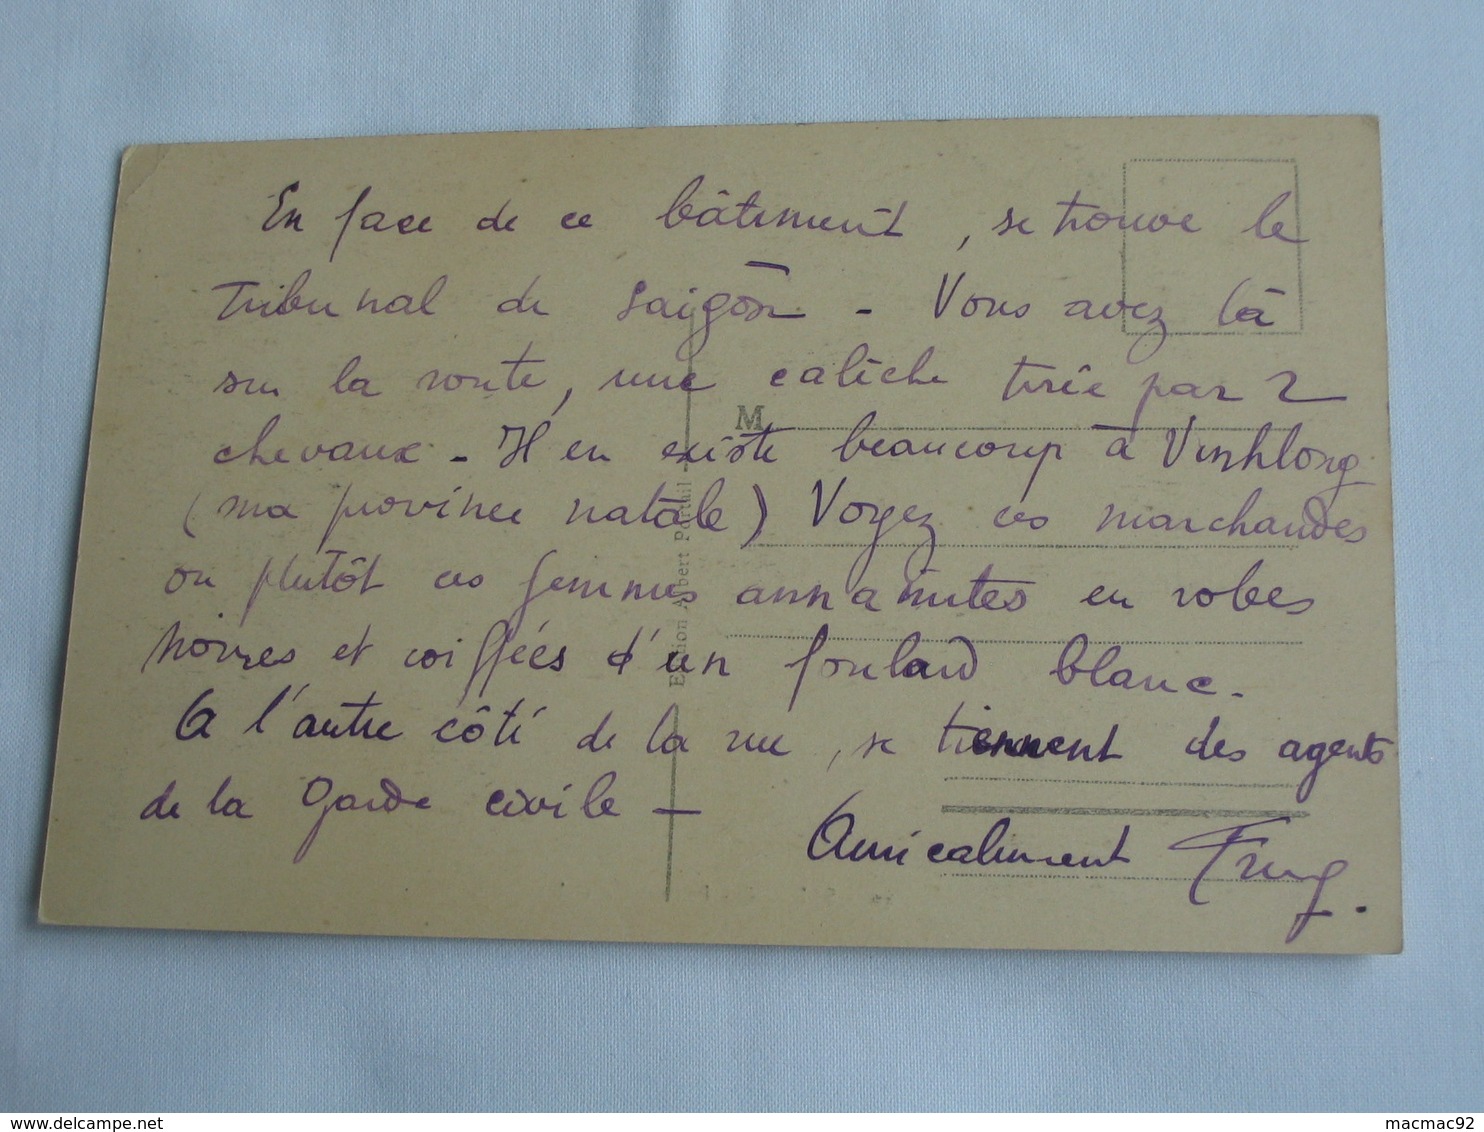 En face de ce bâtiment, se trouve le
tribunal de Saïgon - Vous avez là
sur la route, une calèche tirée par 2
chevaux - Il en existe beaucoup à Vinhlong
(ma province natale) Voyez ces marchandes
ou plutôt ces femmes annamites en robes
noires et coiffées d'un foulard blanc.
A l'autre côté de la rue, se tiennent des agents
de la Garde civile -
Amicalement
M
Edition Albert Portail
macmac92